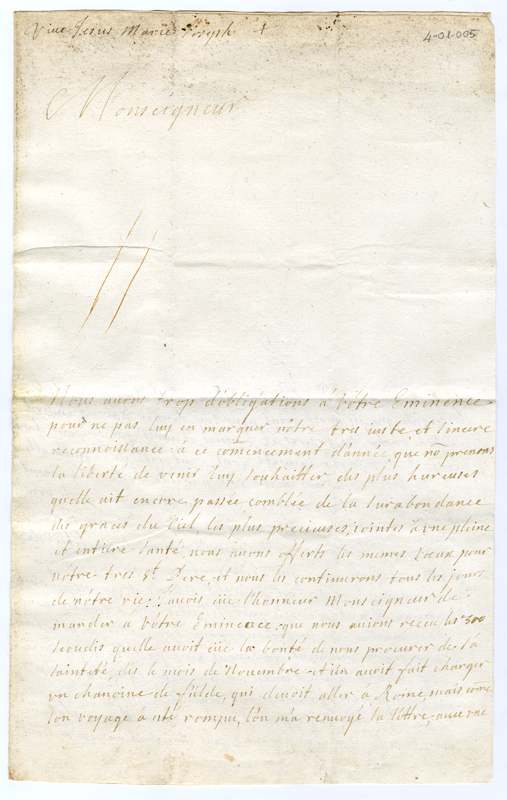 Vive Jesus Marie Joseph +
4-01-005
Monseigneur
Nous avons trop d'obligations à Vôtre Eminence
pour ne pas luy en marquer nôtre tres iuste et sincere
reconnoissance à ce comencement dannée, que nõ prenons
la liberté de venir luy souhaitter des plus hureuses
quelle ait encore passée comblée de la surabondance
des graces du Ciel, les plus precieuses, iointes à vne pleine
et entiere santé, nous auons offerts les memes vœux pour
notre tres St. Pere, et nous les continurons tous les jours
de nôtre vie. j'auois eüe l'honneur Monseigneur de
mander à Vôtre Eminence, que nous auions receu les 500
scoudis quelle auoit eüe la bonté de nous procurer de sa
sainteté, dès le mois de Nouembre et i'en auoit fait charger
vn chanoine de fulde, qui deuoit aller à Rome, mais cõme
son voyage à été rompu, l'on m'a renuoyé la lettre, auec vne